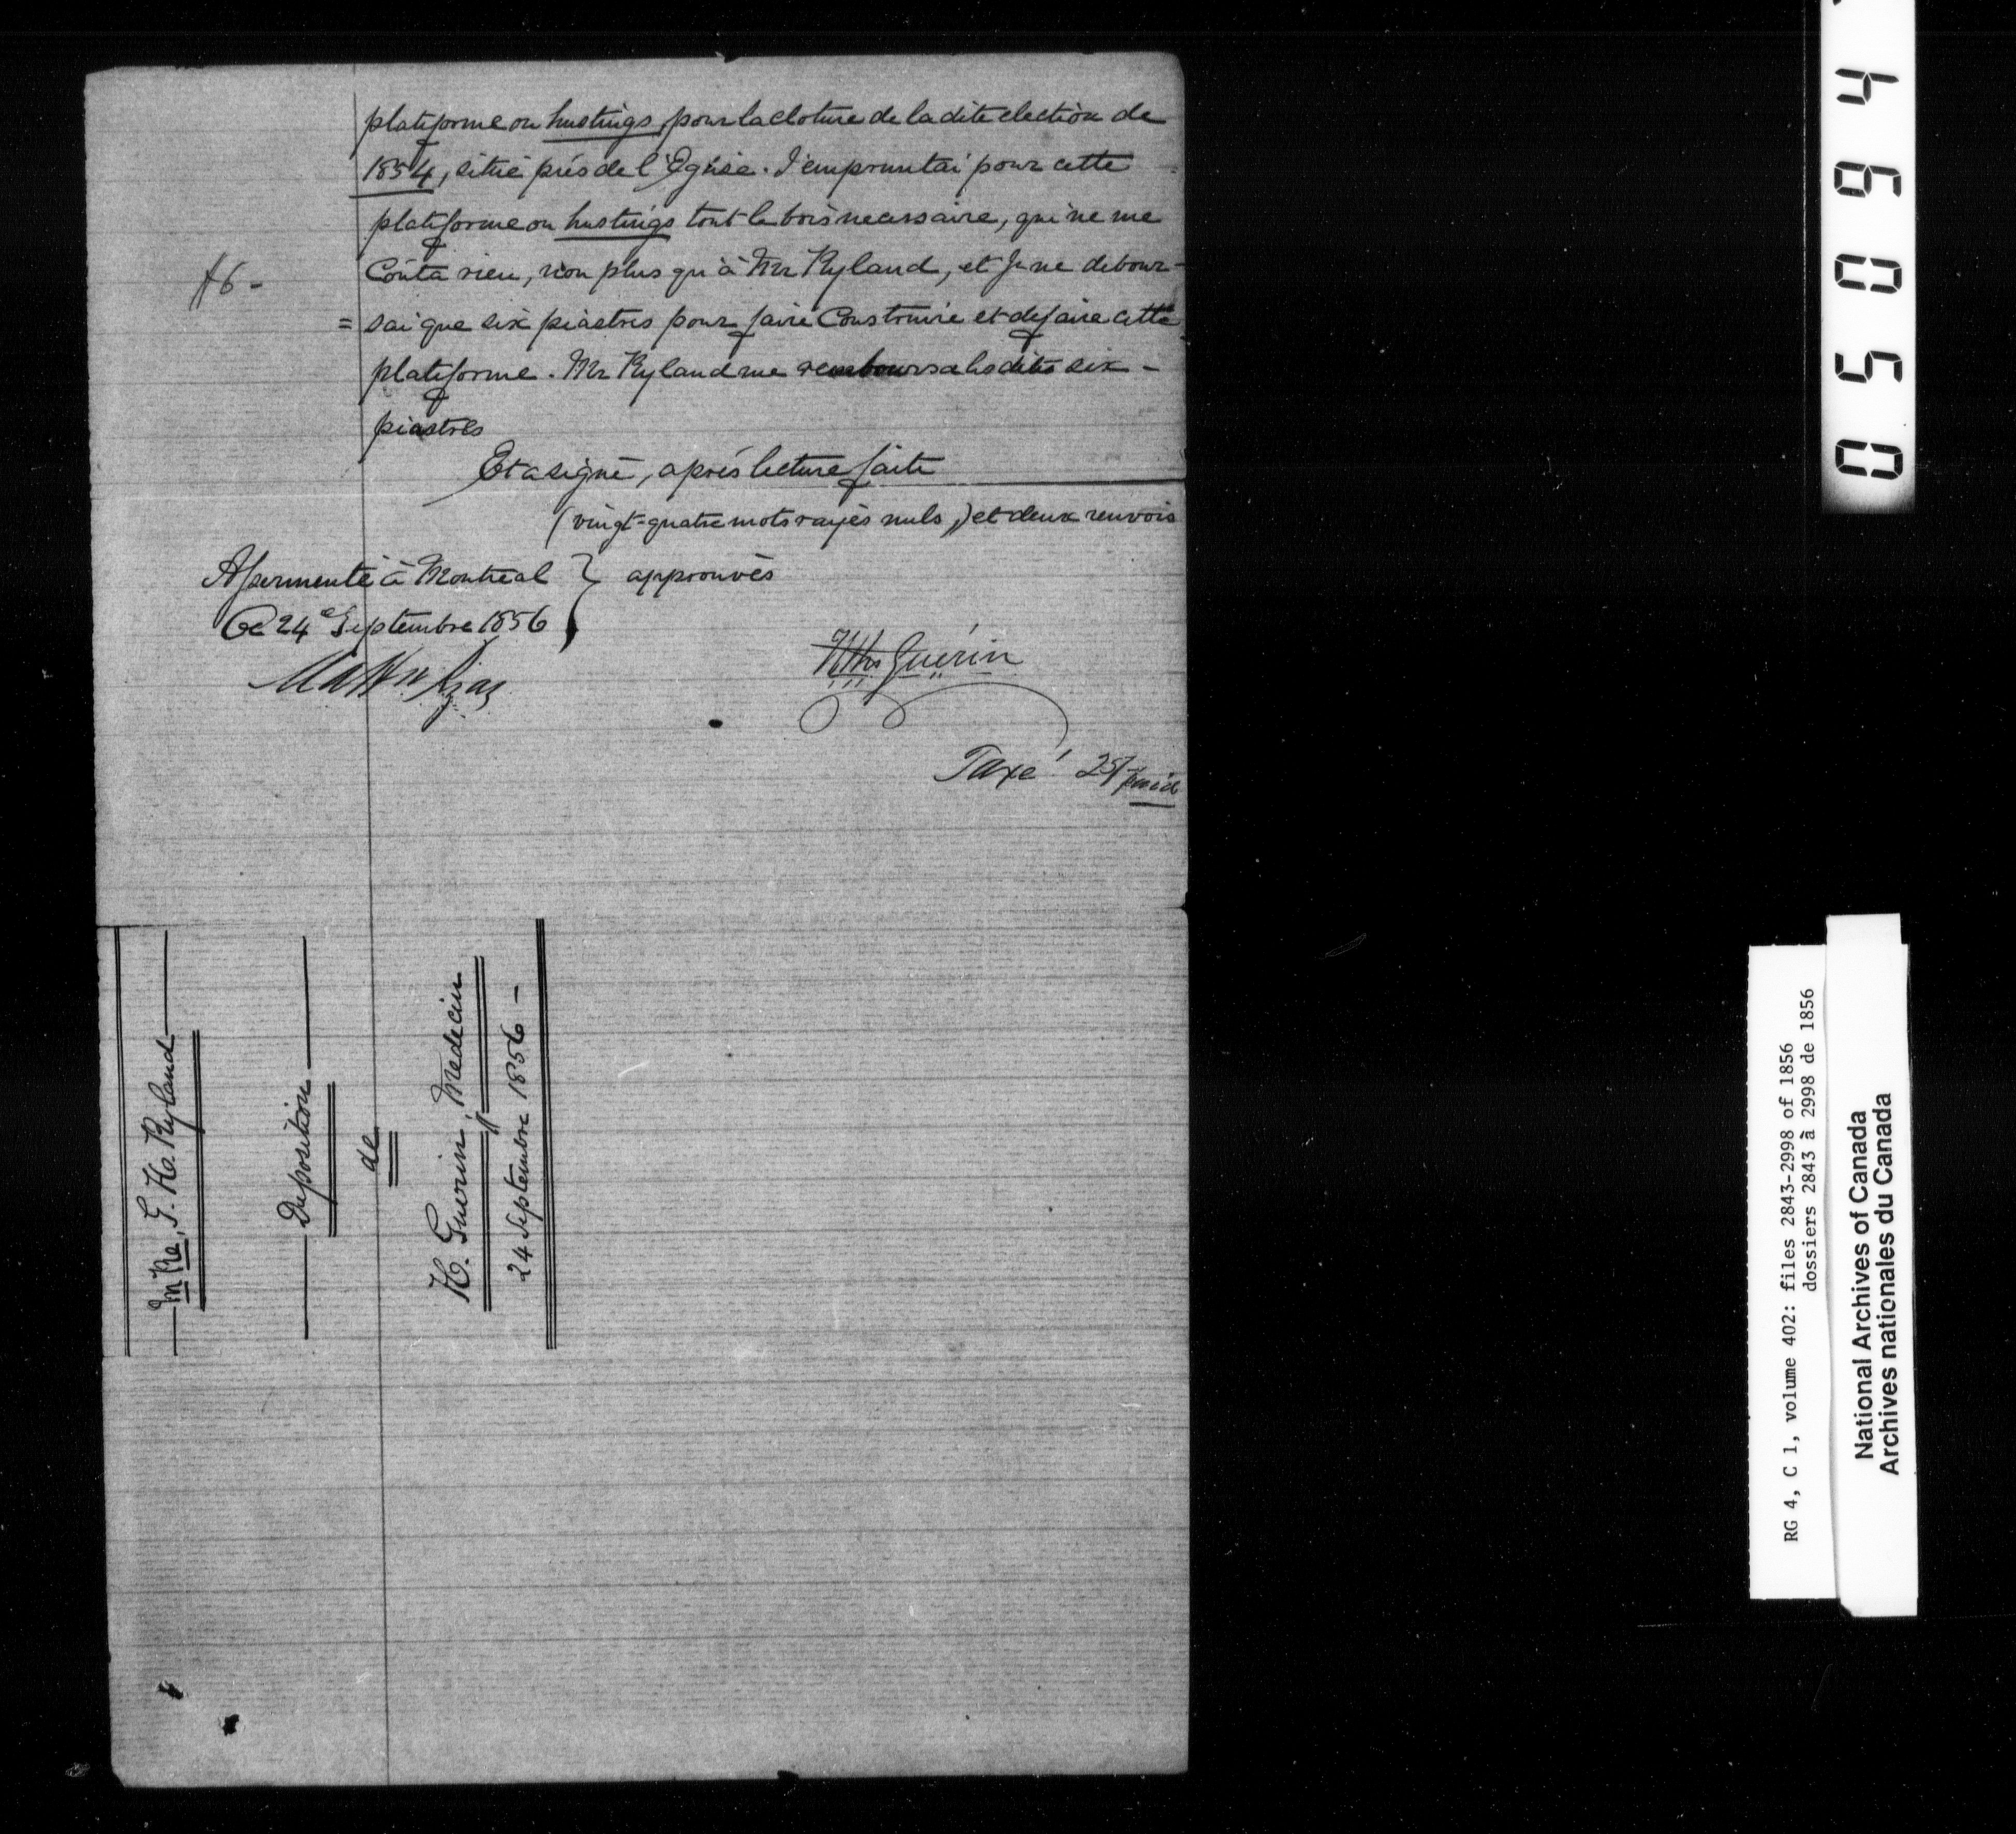 platiforme ou hustings, pour la cloture de la dite election de
1854, situé près de l'Eglise. J'empruntai pour cette
platiforme ou hustings tout le bois necessaire, qui ne me
$6 -
Coûta rien, non plus qu'à Mr Ryland, et je ne debour-
= sai que six piastres pour faire Construire et defaire cette
platiforme. Mr Ryland me remboursa les dites six -
piastres
Et a signé, après lecture faite
(vingt-quatre mots rayés nuls,) et deux renvois
approuvés
Assermenté à Montreal
Ce 24e Septembre 1856
Guérin
Taxé 25/- paid
In Re, G. H. Ryland
Deposition
de
H. Guerin, Medecin
24 Septembre 1856 -
05094
RG 4, C 1, volume 402: files 2843-2998 of 1856
dossiers 2843 à 2998 de 1856
National Archives of Canada
Archives nationales du Canada